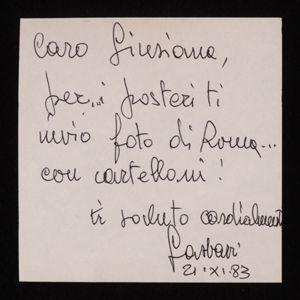 Caro Giuseppe,
per i posteri ti
invio foto di Roma...
con cartelloni!
ti saluto cordialmente
21.XI.83